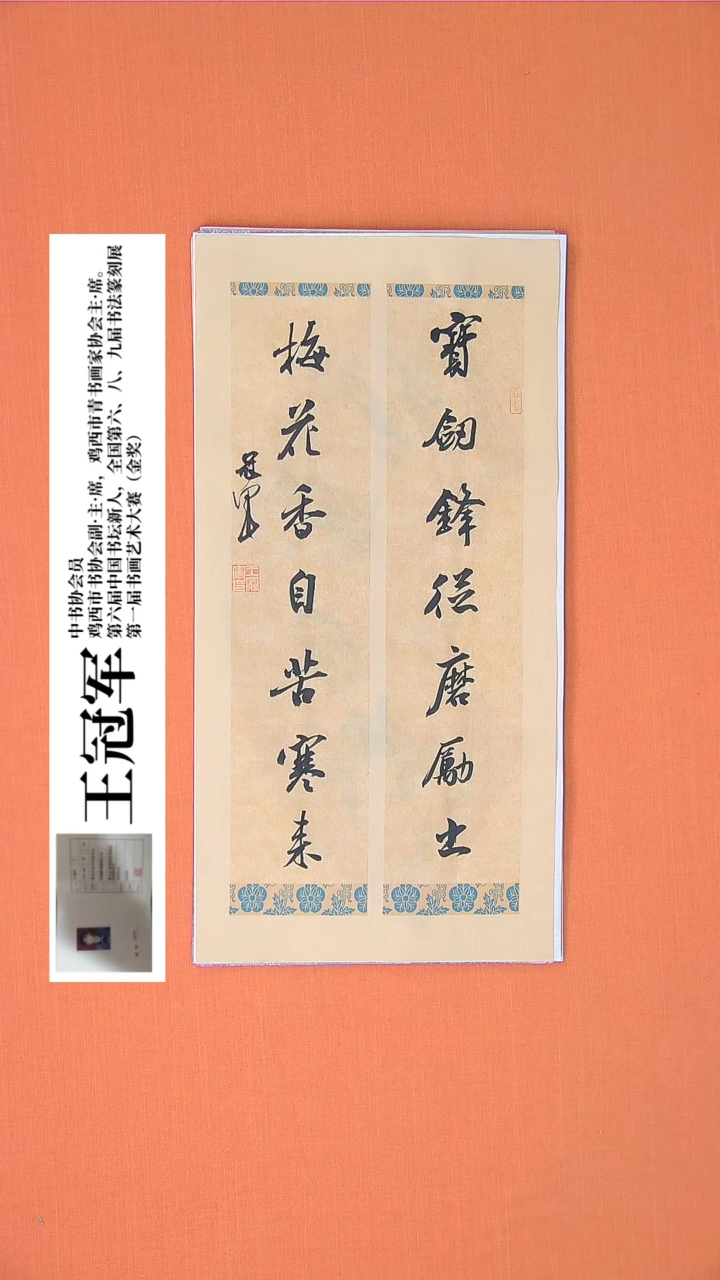 寶劒鋒從磨勵出
梅花香自苦寒来
冠軍
王冠军
中书协会员
鸡西市书协会副·主·席，鸡西市青书画家协会主·席。
第六届中国书坛新人，全国第六、八、九届书法篆刻展
第一届书画艺术大赛（金奖）